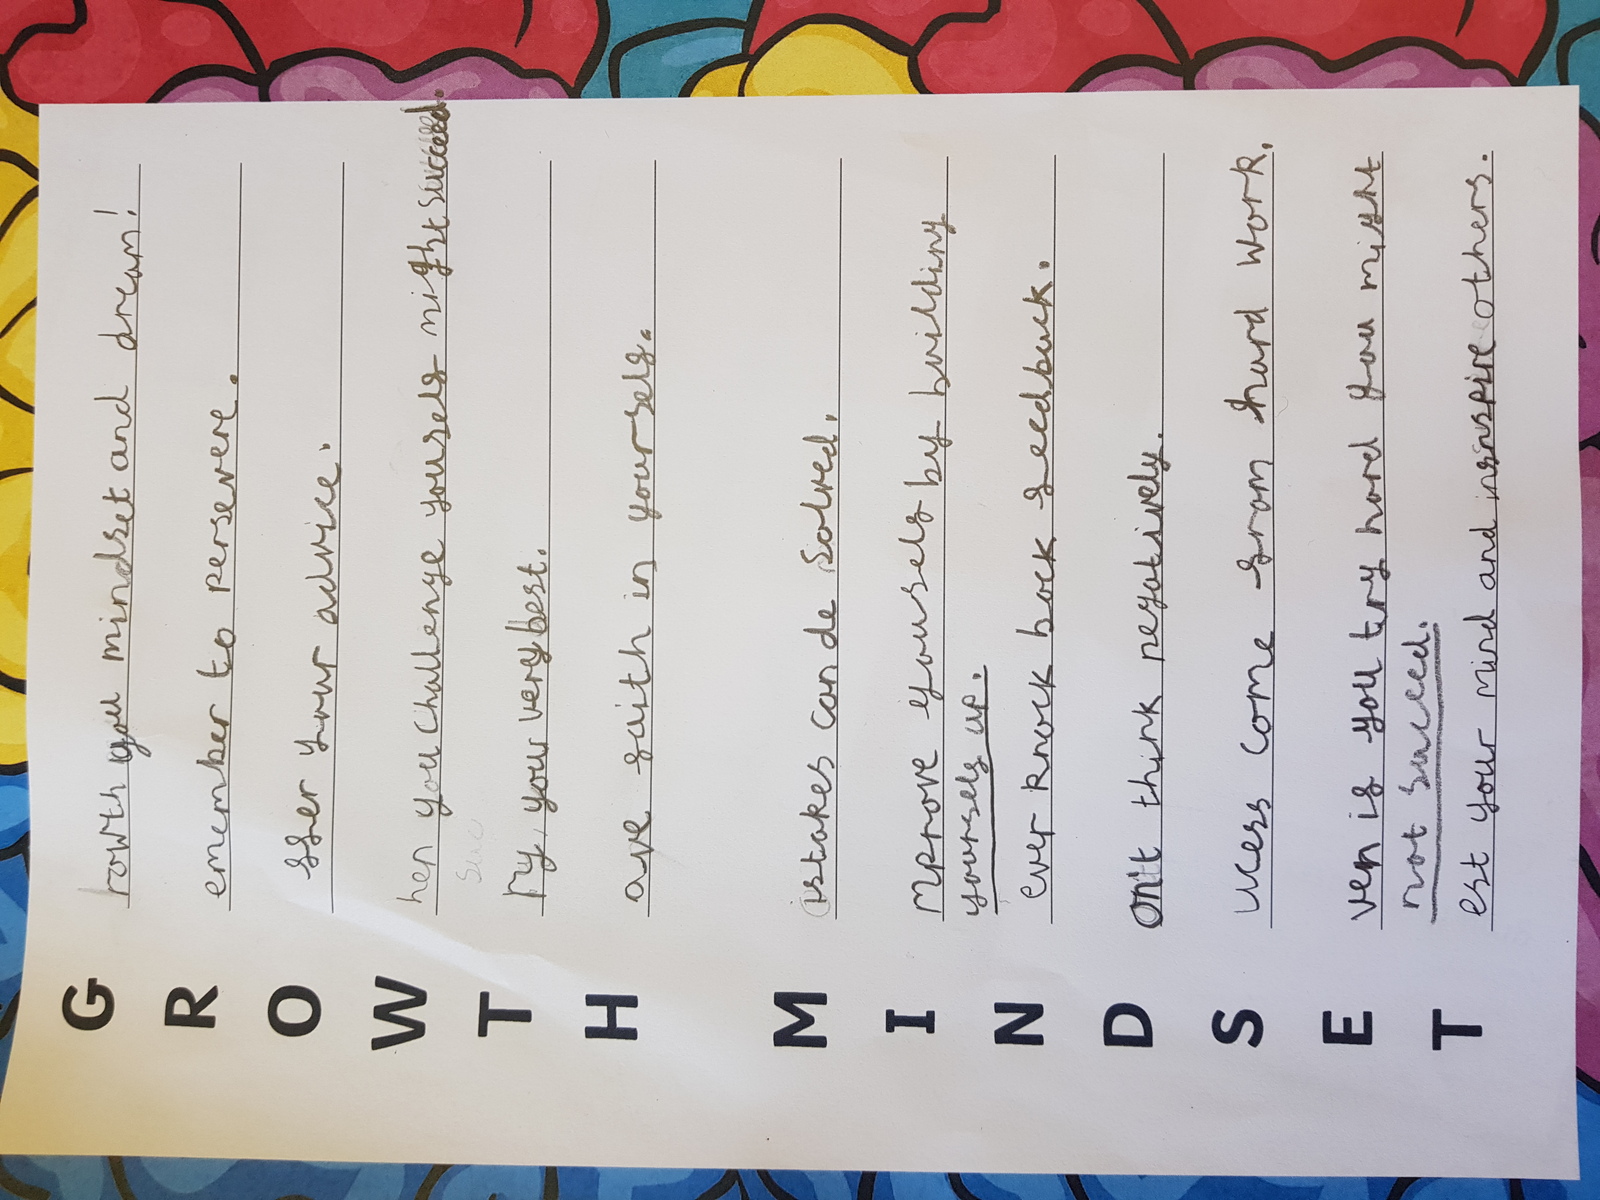 G rowth you mindset and dream!
R emember to persevere.
O ffer your advice.
W hen you challenge yourself might succeed.
T ry, your very best.
H ave faith in yourself.
M istakes can de solved.
I mprove yourself by building
yourself up.
N ever knock back feedback.
D on't think negatively.
S ucess come from hard work.
E ven if you try hard you might
not succeed.
T est your mind and inspire others.